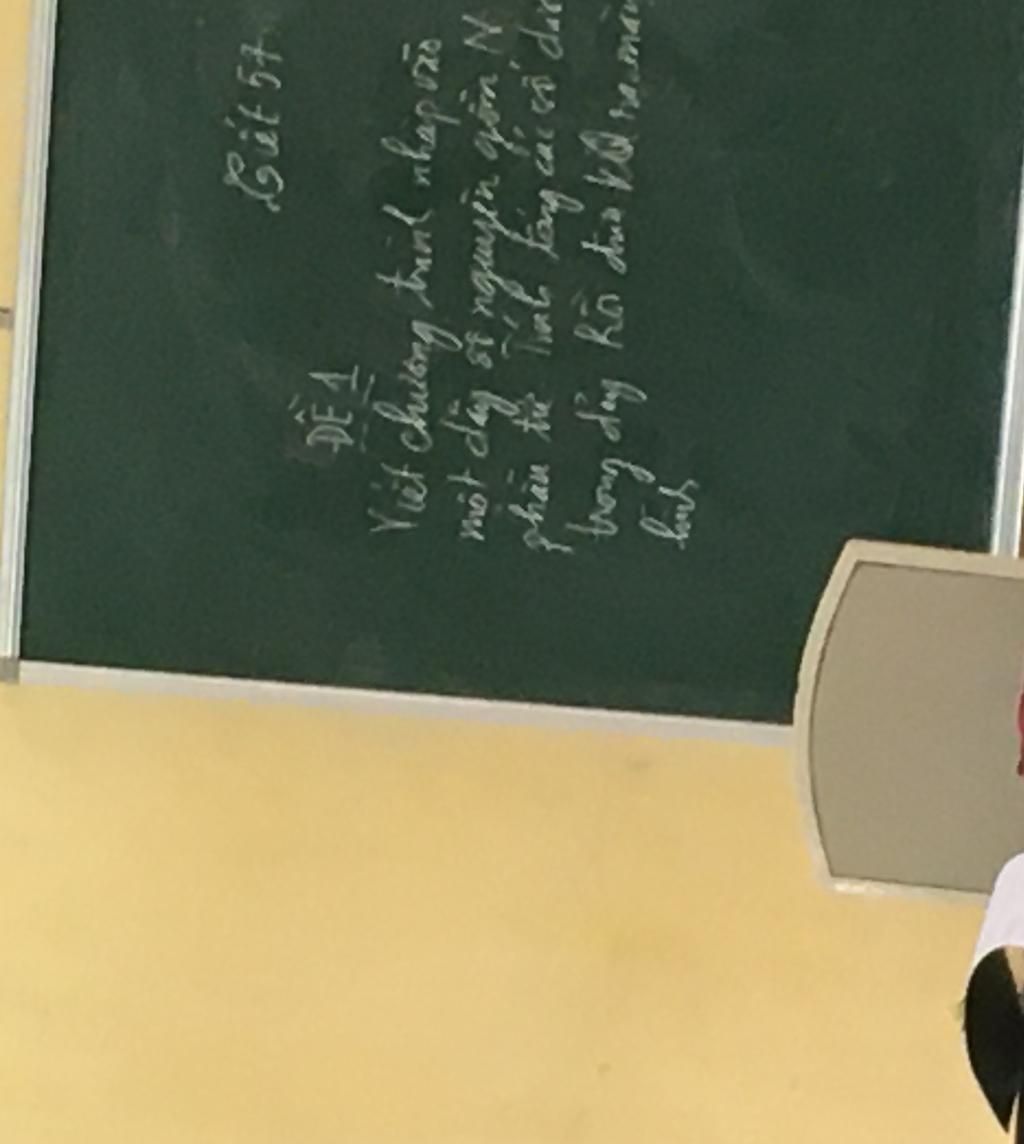 Tiết 57
ĐỀ 1
Viết chương trình nhập vào
một dãy số nguyên gồm N
phần tử. Tính tổng các số
trong dãy. Rồi đưa KQ ra màn
hình